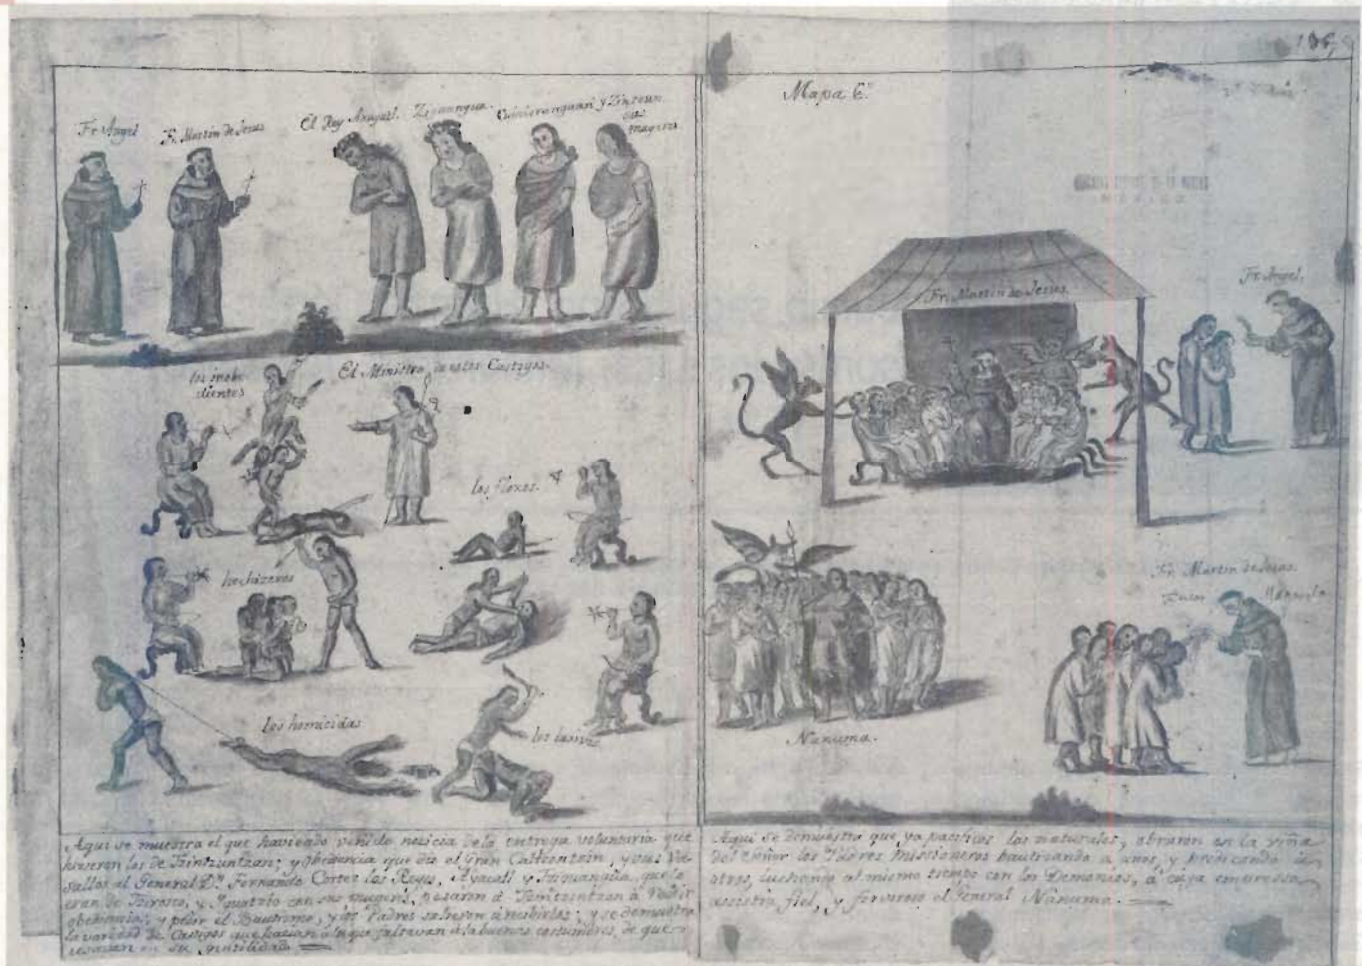 Fr Angel
F. Martin de Jesus
El Rey Axayatl. Zipanngua.
Cuinieranguari y Zintzun
sus
mugeres
los inobe
dientes
El Ministro, de estos Castigos.
los floxos.
hechizeros
los homicidas
los lasivos
Aqui se muestra el que haviendo venido noticia de la entrega voluntaria que
hizieron los de Tzintzuntzan; y obidencia que dio el Gran Caltzontzin, y sus Va
sallos al General Dn. Fernando Cortez los Reyes, Ayacatl y Tziquangua, que lo
eran de Tziroto, y Iguatzio con sus mugeres, pasaron á Tzintzuntzan á Rendir
obediencia, y pedir el Bautismo, y los Padres salieron á resibirlos; y se demuestra
la variedad de Castigos que hacian á los que faltavan á la buenas costumbres, de que
usavan en su gentilidad.
Mapa 6.
Fr. Martin de Jesus.
Fr. Angel.
Fr. Martin de Jesus.
Nanuma.
Aqui se demuestra que, ya pacificos los naturales, obraron en la viña
del Señor los Padres Misioneros bautizando a unos, y predicando á
otros, luchando al mismo tiempo con los Demonios, á cuya empressa
assistia fiel, y fervoroso el General Nanuma.